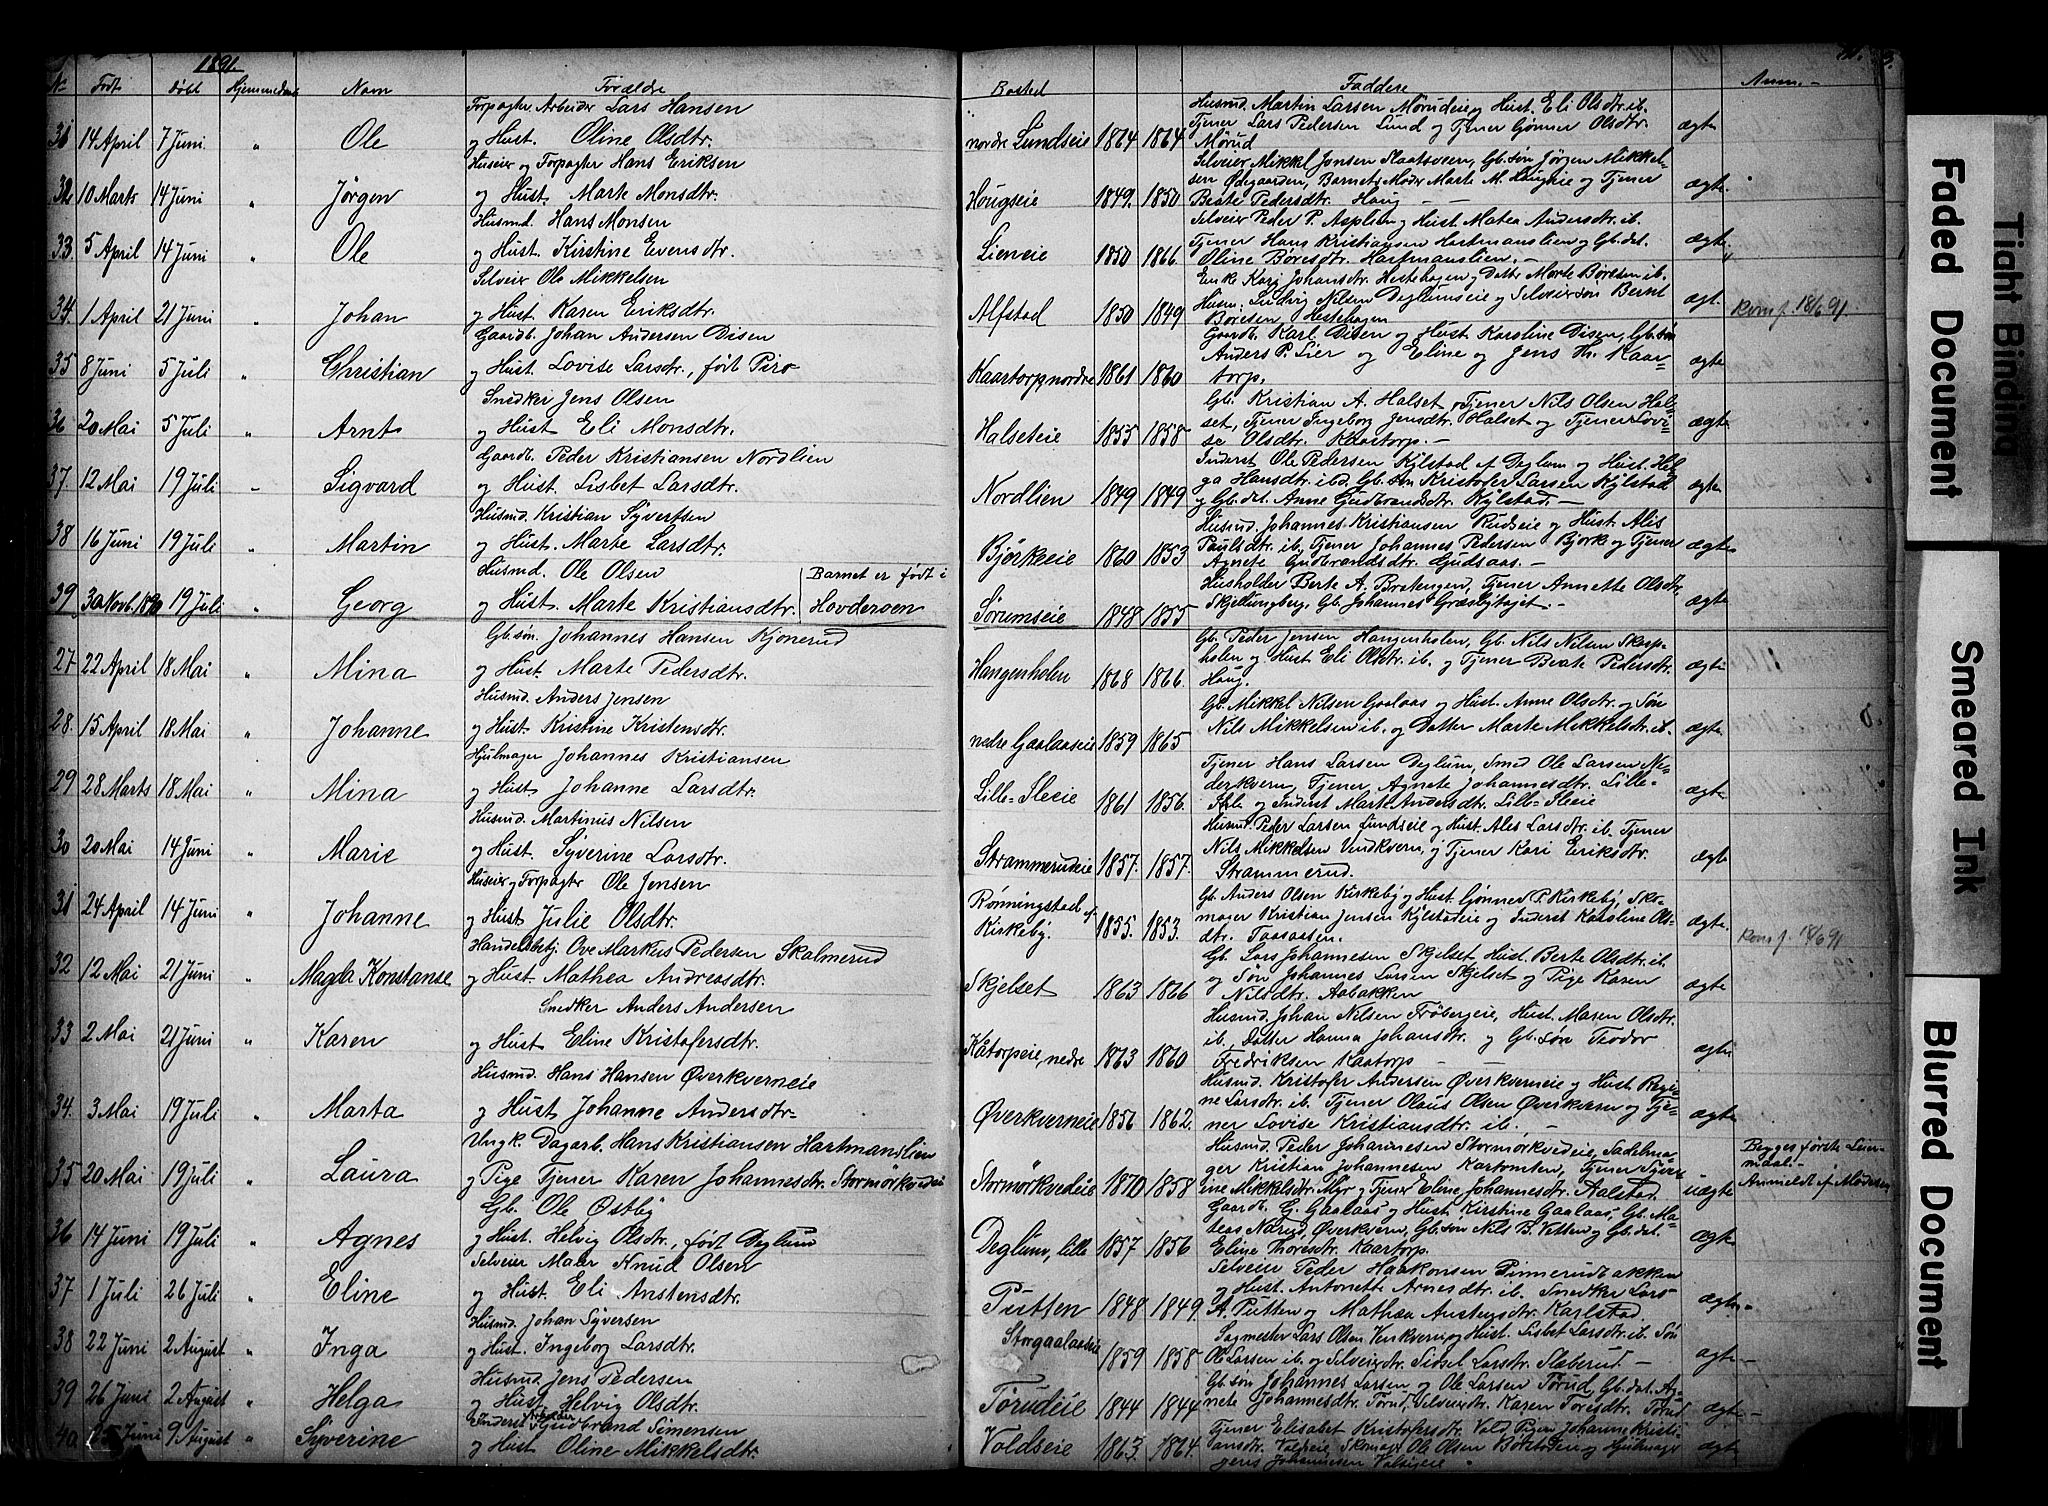 1891.
No Født Døbt Hjemmedøbt Navn Forældre Bosted Faddere Anm.
Forpagter Arbeider Lars Hansen
31 14 April 7 Juni " Ole og Hust. Oline Olsdtr. nordre Lundseie 1864 1864 ægte
Husmd. Martin Larsen Mørudeie, Hust. Eli Olsdtr. ib.
Tjener Lars Pedersen Lund og Tjener Gønner Olsdtr.
Mørud
Huseier og Forpagter Hans Eriksen
32 10 Marts 14 Juni " Jörgen og Hust. Marte Monsdtr. Hougseie 1849. 1850 ægte
Selveier Mikkel Jonsen Slaatsveen, Gb. søn Jörgen Mikkel-
sen Ødegaarden, Barnets Moder Marte M. Haugeie og Tjener
Beate Pedersdtr. Haug
Husmd. Hans Monsen
33. 5 April 14 Juni " Ole og Hust. Kirstine Evensdtr. Lieneie 1850 1866 ægte
Selveier Peder P. Asplun og Hust. Matea Andersdtr. ib.
Tjener Hans Kristiansen Hartmanslien og Gb. dat.
Oline Boresdtr. Hartmanslien.
Selveier Ole Mikkelsen
34. 1 April 21 Juni " Johan og Hust. Karen Eriksdtr. Alfstad 1850 1849 ægt. Konf. 18/6 91
Enke Kari Johansdtr. Hestehagen, Datter Marte Böresen ib.
Husm. Ludvig Nilsen Deglumseie og Selveiersön Bernt
Böresen, Hestehagen
Gaardb. Johan Andersen Disen
35 8 Juni 5 Juli " Christian og Hust. Lovise Larsdtr., født Piro Kaartorp nordre 1861 1860 ægte
Gaardb. Karl Disen og Hust. Karoline Disen, Gb. søn
Anders P. Lier og Eline og Jens Th. Kaar-
torp.
Snedker Jens Olsen
36 20 Mai 5 Juli " Arnt og Hust. Eli Monsdtr. Halseteie 1855 1858 ægte
Gb. Kristian A. Halset, Tjener Nils Olsen Hal-
set, Tjener Ingeborg Jensdtr. Halset og Tjener Lovi-
se Olsdtr. Kaatorp.
Gaardb. Peder Kristiansen Nordlien
37. 12 Mai 19 Juli " Sigvard og Hust. Lisbet Larsdtr. Nordlien 1849 1849 ægte
Inderst Ole Pedersen Kylstad af Deglum og Hust. Hel-
ga Hansdtr. ibd. Gb. søn Kristofer Larsen Kylstad
og Gb. dat. Anne Gudbrandsdtr. Kylstad.
Husmd. Kristian Syvertsen
38 16 Juni 19 Juli " Martin og Hust. Marte Larsdtr. Björkeeie 1860 1853 ægte
Husmd. Johannes Kristiansen Rudseie og Hust. Alis
Paulsdtr. ib. Tjener Johannes Pedersen Bjork og Tjener
Agnete Gudbrandsdtr. Gudsaas.
Husmd. Ole Olsen Barnet er født i
39 30 Novb. 1890 19 Juli " Georg og Hust. Marte Kristiansdtr. Hovderoen Sörumseie 1848 1855 ægte
Husholder Berte A. Bratengen, Tjener Annette Olsdtr.
Skjellungberg, Gb. Johannes Græslytøjet.
Gb. søn. Johannes Hansen Kjonerud
27 22 April 18 Mai " Mina og Hust. Marte Pedersdtr. Hangenholen 1868 1866. ægte
Gb. Peder Jensen Hangenholen, Gb. Nils Nilsen Skarp-
holen og Hust. Eli Olsdtr. ib. og Tjener Beate Pedersdtr.
Haug.
Husmd. Anders Jensen
28. 15 April 18 Mai " Johanne og Hust. Kristine Kristensdtr. nedre Gaalaaseie 1859 1865 ægte
Gb. Mikkel Nilsen Gaalaas og Hust. Anne Olsdtr. og Søn
Nils Mikkelsen ib. og Datter Marte Mikkelsdtr. ib.
Hjulmager Johannes Kristiansen
29 28 Marts 18 Mai " Mina og Hust. Johanne Larsdtr. Lille-Sleeie 1861 1856. ægte
Tjener Hans Larsen Deglum, Smed Ole Larsen Ne-
derkvern, Tjener Agnete Johannesdtr. Lille-
Sle og Inderst Marte Andersdtr. Lille-Sleeie
Husmd. Martinus Nilsen
30 20 Mai 14 Juni " Marie og Hust. Syverine Larsdtr. Strammerudeie 1857. 1857. ægte
Husmd. Peder Larsen Lundseie og Hust. Ales Larsdtr. ib. Tjener
Nils Mikkelsen Vendkvern, og Tjener Kari Eriksdtr.
Strammerud.
Huseier og Forpagter Ole Jensen
31 24 April 14 Juni " Johanne og Hust Julie Olsdtr. Rønningstad af Kirkeby. 1855. 1853. ægte
Gb. Anders Olsen Kirkeby og Hust. Gönner P. Kirkeby, Sko-
mager Kristian Jensen Kylstadeie og Inderst Karoline Ols-
dtr. Taasaasen.
Handelsbetj. Ove Markus Pedersen Skalmerud
32 12 Mai 21 Juni " Magda Konstanse og Hust. Mathea Andreasdtr. Skjelset 1863 1866 ægte Konf. 18/6 91
Gb. Lars Johannesen Skjelset, Hust. Berte Olsdtr. ib.
og Søn Johannes Larsen Skjelset og Pige Karen
Nilsdtr. Aabakken
Snedker Anders Andersen
33 2 Mai 21 Juni " Karen og Hust. Eline Kristofersdtr. Kåtorpeie, nedre 1863 1860 ægte
Husmd. Johan Nilsen Fröbergeie, Hust. Maren Olsdtr.
ib., Datter Hanna Johansdtr. og Gb. søn Teodor
Fredriksen Kaatorp
Husmd. Hans Hansen Øverkverneie
34. 3 Mai 19 Juli " Marta og Hust. Johanne Andersdtr. Øverkverneie 1856 1862. ægte
Husmd. Kristofer Andersen Øverkverneie og Hust. Regi-
ne Larsdtr. ib. Tjener Olaus Olsen Øverkvern og Tje-
ner Lovise Kristiansdtr. ib.
Ungk. Dagarb. Hans Kristiansen Hartmandslien
35 20 Mai 19 Juli " Laura og Pige Tjener Karen Johannesdtr. Stormørkvedeie Stormørkvedeie 1870 1858 uægte
Husmd. Peder Johannesen Stormørkvedeie, Sadelma-
ger Kristian Johannesen Kartomten, Tjener Syver-
ine Mikkelsdtr. Myr og Tjener Eline Johannesdtr. Aalstad.
Begges første Leier-
maal.
Anmeldt af Moderen
Gb. Ole Østby
36 14 Juni 19 Juli " Agnes og Hust. Helvig Olsdtr., født Deglum Deglum, lille 1857 1856 ægte
Gaardb. G. Gaalaas og Hust. Kirstine Gaalaas, Gb. Ma-
teas Narud, Øverkvern, Gb. søn Nils B. Vetten og Gb. dat.
Eline Thoresdtr. Kaartorp.
Selveier Maler Knud Olsen
37 1 Juli 26 Juli " Eline og Hust. Eli Anstensdtr. Putten 1848 1849. ægte
Selveier Peder Haakonsen Pinnerudbakken
og Hust. Antonette Arnesdtr. ib. Snedker Lars
A. Putten og Mathea Anstensdtr. Karlstad.
Husmd. Johan Syversen
38 22 Juni 2 August " Inga og Hust. Ingeborg Larsdtr. Storgaalaaseie 1859 1858 ægte
Sagmester Lars Olsen Venkvern og Hust. Lisbet Larsdtr. ib. Søn
Ole Larsen ib. og Selveierdtr. Sidsel Larsdtr. Slaberud
Husmd. Jens Pedersen
39 26 Juni 2 August " Helga og Hust. Helvig Olsdtr. Törudeie 1844 1844 ægte
Gb. søn Johannes Larsen og Ole Larsen Törud, Gb. dat. Ag-
nete Johannesdtr. Törud, Selveierdtr. Karen Toresdtr. Törud
Inderst Arbeider Gudbrand Simensen
40 Juni 9 August " Syverine og Hust Oline Mikkelsdtr. Voldseie 1863. 1864. ægte
Tjener Elisabet Kristofersdtr. Vold, Pigen Johanne Kristi-
ansdtr. Valseie, Skomag. Ole Olsen
Johannesen
Tight Binding
Faded Document
Smeared Ink
Blurred Document